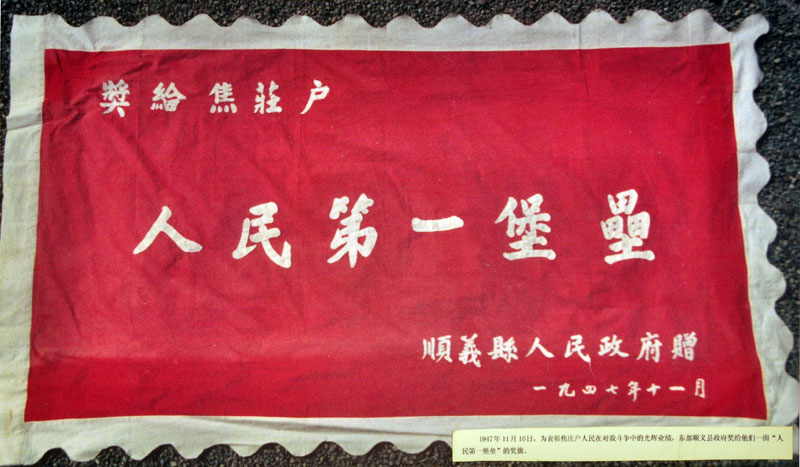 獎給焦莊户
人民第一堡壘
順義縣人民政府贈
一九四七年十一月
1947年11月10日，为表彰焦庄户人民在对敌斗争中的光辉业绩，东部顺义县政府奖给他们一面“人
民第一堡垒”的奖旗。